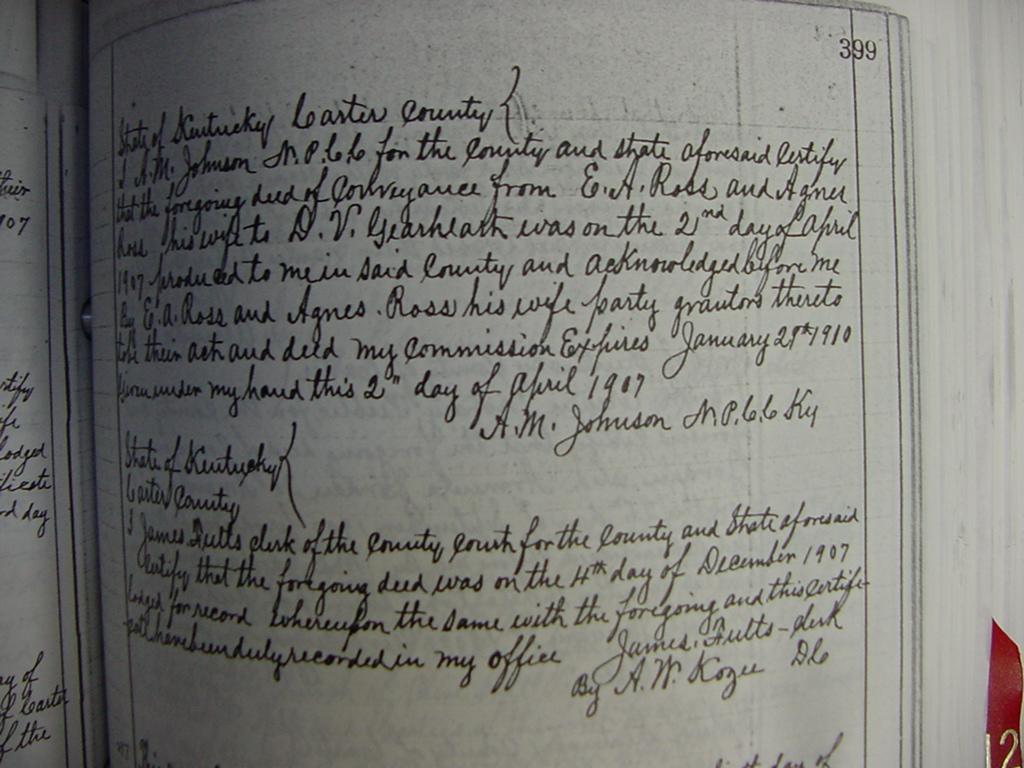 399
State of Kentucky Carter County
I A.M. Johnson N.P.C.C for the County and state aforesaid Certify
that the foregoing deed of Conveyance from E.A. Ross and Agnes
Ross his wife to D.V. Gearheart was on the 2nd day of April
1907 produced to me in said County and acknowledged before me
By E.A. Ross and Agnes Ross his wife party grantors thereto
to be their act and deed my Commission Expires January 29th 1910
Given under my hand this 2" day of April 1907
A.M. Johnson N.P.C.C Ky
State of Kentucky
Carter County
I James Fults clerk of the County Court for the County and State aforesaid
Certify that the foregoing deed was on the 4th day of December 1907
lodged for record whereupon the same with the foregoing and this Certifi-
cate have been duly recorded in my office James Fults - clerk
By A.W. Kozee D.C
day of
their
907
rtify
ife
lodged
ificate
rd day
ay of
of Carter
f the
12